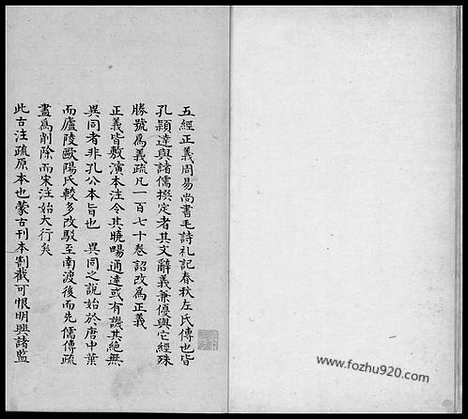 五經正義周易尚書毛詩礼記春秋左氏傳也皆
孔穎達與諸儒撰定者其文辭義兼優與它經殊
勝號為義疏凡一百七十卷詔改為正義
正義皆敷演本注令其曉暢通達或有譏其絕無
異同者非孔公本旨也 異同之說始於唐中葉
而廬陵歐陽氏較多改駁至南渡後而先儒傳疏
盡為削除而宋注始大行矣
此古注疏原本也蒙古刊本割裁可恨明興諸監
www.fozhu920.com